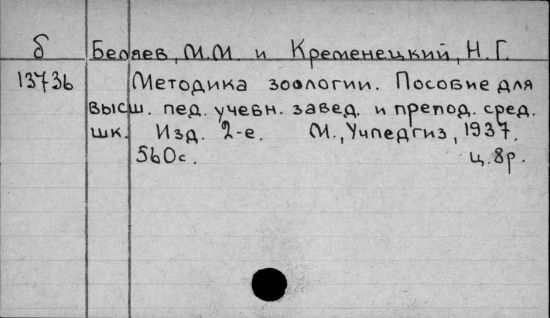 б Беляев, М.М. и Кременецкий, Н.Г.
13736 Методика зоологии. Пособие для
высш. пед. учебн. завед. и препод. сред.
шк. Изд. 2-е. М., Учпедгиз, 1937.
560с. ц. 8р.